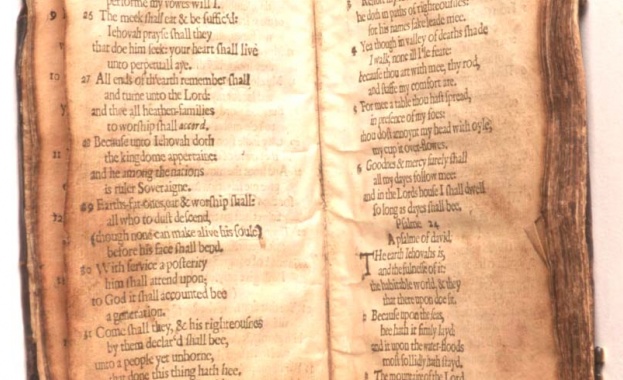 performe my vowes will I.
9 26 The meek shall eat & be suffic'd:
Iehovah prayse shall they
that doe him seek: your heart shall live
unto perpetuall aye.
10 27 All ends of th'earth remember shall
and turne unto the Lord:
and thee all heathen-families
to worship shall accord,
28 Because unto Iehovah doth
11 the kingdome appertaine:
and he among the nations
is ruler Soveraigne.
29 Earths-fat-ones, eat & worship shall:
12 all who to dust descend,
(though none can make alive his soule)
before his face shall bend.
30 With service a posterity
him shall attend upon;
to God it shall accounted bee
a generation.
31 Come shall they, & his righteousnes
by them declar'd shall bee,
unto a people yet unborne,
that done this thing hath hee.
3
he doth in paths of righteousnes:
for his names sake leade mee.
4 Yea though in valley of deaths shade
I walk, none ill I'le feare:
because thou art with mee, thy rod,
and staffe my comfort are.
5 For mee a table thou hast spread,
in presence of my foes:
thou dost annoynt my head with oyle,
my cup it over-flowes.
6 Goodnes & mercy surely shall
all my dayes follow mee:
and in the Lords house I shall dwell
so long as dayes shall bee.
Psalme 24
A psalme of david.
THe earth Iehovahs is,
and the fulnesse of it:
the habitable world, & they
that there upon doe sit.
2 Because upon the seas,
hee hath it firmly layd:
and it upon the water-floods
most sollidly hath stayd.
The mountaine of the Lord,